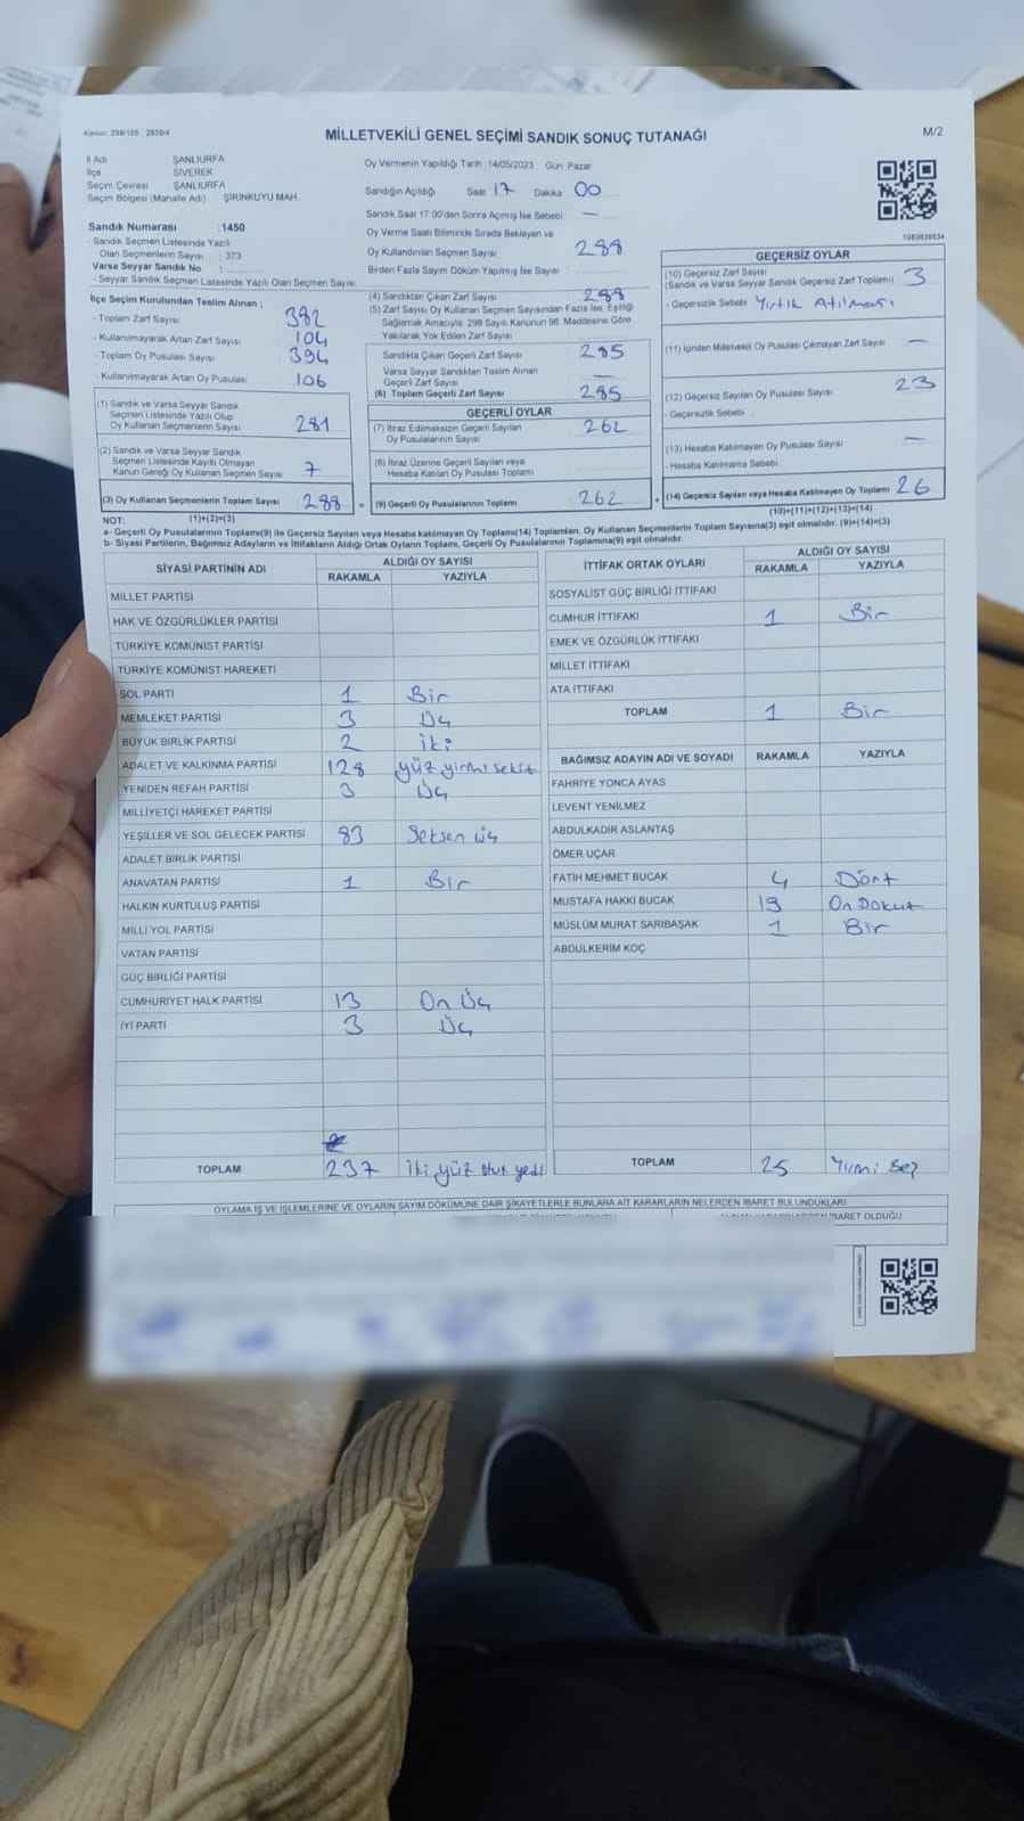 MİLLETVEKİLİ GENEL SEÇİMİ SANDIK SONUÇ TUTANAĞI
M/2
İl Adı ŞANLIURFA
İlçe SİVEREK
Seçim Çevresi ŞANLIURFA
Seçim Bölgesi (Mahalle Adı) ŞİRİNKUYU MAH.
Oy Vermenin Yapıldığı Tarih : 14/05/2023 Gün: Pazar
Sandığın Açıldığı Saat 17 Dakika 00
Sandık Saat 17:00'dan Sonra Açılmış İse Sebebi: —
Sandık Numarası : 1450
- Sandık Seçmen Listesinde Yazılı
Olan Seçmenlerin Sayısı : 373
Varsa Seyyar Sandık No :
- Seyyar Sandık Seçmen Listesinde Yazılı Olan Seçmen Sayısı:
Oy Verme Saati Bitiminde Sırada Bekleyen ve
Oy Kullandırılan Seçmen Sayısı 288
Birden Fazla Sayım Döküm Yapılmış İse Sayısı
İlçe Seçim Kurulundan Teslim Alınan ;
- Toplam Zarf Sayısı 382
- Kullanılmayarak Artan Zarf Sayısı 104
- Toplam Oy Pusulası Sayısı 394
- Kullanılmayarak Artan Oy Pusulası 106
(1) Sandık ve Varsa Seyyar Sandık
Seçmen Listesinde Yazılı Olup
Oy Kullanan Seçmenlerin Sayısı 281
(2) Sandık ve Varsa Seyyar Sandık
Seçmen Listesinde Kayıtlı Olmayan
Kanun Gereği Oy Kullanan Seçmen Sayısı 7
(3) Oy Kullanan Seçmenlerin Toplam Sayısı 288
(1)+(2)=(3)
(4) Sandıktan Çıkan Zarf Sayısı 288
(5) Zarf Sayısı Oy Kullanan Seçmen Sayısından Fazla İse, Eşitliği
Sağlamak Amacıyla, 298 Sayılı Kanunun 98. Maddesine Göre
Yakılarak Yok Edilen Zarf Sayısı
Sandıkta Çıkan Geçerli Zarf Sayısı 285
Varsa Seyyar Sandıktan Teslim Alınan
Geçerli Zarf Sayısı —
(6) Toplam Geçerli Zarf Sayısı 285
GEÇERLİ OYLAR
(7) İtiraz Edilmeksizin Geçerli Sayılan
Oy Pusulalarının Sayısı 262
(8) İtiraz Üzerine Geçerli Sayılan veya
Hesaba Katılan Oy Pusulası Toplamı
(9) Geçerli Oy Pusulalarının Toplamı 262
GEÇERSİZ OYLAR
(10) Geçersiz Zarf Sayısı 3
(Sandık ve Varsa Seyyar Sandık Geçersiz Zarf Toplamı)
- Geçersizlik Sebebi: Yırtık Atılması
(11) İçinden Milletvekili Oy Pusulası Çıkmayan Zarf Sayısı —
(12) Geçersiz Sayılan Oy Pusulası Sayısı 23
- Geçersizlik Sebebi :
(13) Hesaba Katılmayan Oy Pusulası Sayısı —
- Hesaba Katılmama Sebebi:
(14) Geçersiz Sayılan veya Hesaba Katılmayan Oy Toplamı 26
(10)+(11)+(12)+(13)=(14)
NOT:
a- Geçerli Oy Pusulalarının Toplamı(9) ile Geçersiz Sayılan veya Hesaba katılmayan Oy Toplamı(14) Toplamları, Oy Kullanan Seçmenlerin Toplam Sayısına(3) eşit olmalıdır. (9)+(14)=(3)
b- Siyasi Partilerin, Bağımsız Adayların ve İttifakların Aldığı Ortak Oyların Toplamı, Geçerli Oy Pusulalarının Toplamına(9) eşit olmalıdır.
SİYASİ PARTİNİN ADI ALDIĞI OY SAYISI
RAKAMLA YAZIYLA
MİLLET PARTİSİ
HAK VE ÖZGÜRLÜKLER PARTİSİ
TÜRKİYE KOMÜNİST PARTİSİ
TÜRKİYE KOMÜNİST HAREKETİ
SOL PARTİ 1 Bir
MEMLEKET PARTİSİ 3 Üç
BÜYÜK BİRLİK PARTİSİ 2 iki
ADALET VE KALKINMA PARTİSİ 128 yüz yirmi sekiz
YENİDEN REFAH PARTİSİ 3 Üç
MİLLİYETÇİ HAREKET PARTİSİ
YEŞİLLER VE SOL GELECEK PARTİSİ 83 Seksen üç
ADALET BİRLİK PARTİSİ
ANAVATAN PARTİSİ 1 Bir
HALKIN KURTULUŞ PARTİSİ
MİLLİ YOL PARTİSİ
VATAN PARTİSİ
GÜÇ BİRLİĞİ PARTİSİ
CUMHURİYET HALK PARTİSİ 13 On Üç
İYİ PARTİ 3 Üç
TOPLAM 237 İki yüz otuz yedi
İTTİFAK ORTAK OYLARI ALDIĞI OY SAYISI
RAKAMLA YAZIYLA
SOSYALİST GÜÇ BİRLİĞİ İTTİFAKI
CUMHUR İTTİFAKI 1 Bir
EMEK VE ÖZGÜRLÜK İTTİFAKI
MİLLET İTTİFAKI
ATA İTTİFAKI
TOPLAM 1 Bir
BAĞIMSIZ ADAYIN ADI VE SOYADI RAKAMLA YAZIYLA
FAHRİYE YONCA AYAS
LEVENT YENİLMEZ
ABDULKADİR ASLANTAŞ
ÖMER UÇAR
FATİH MEHMET BUCAK 4 Dört
MUSTAFA HAKKI BUCAK 19 On Dokuz
MÜSLÜM MURAT SARIBAŞAK 1 Bir
ABDULKERİM KOÇ
TOPLAM 25 Yirmi beş
OYLAMA İŞ VE İŞLEMLERİNE VE OYLARIN SAYIM DÖKÜMÜNE DAİR ŞİKAYETLERLE BUNLARA AİT KARARLARIN NELERDEN İBARET BULUNDUKLARI